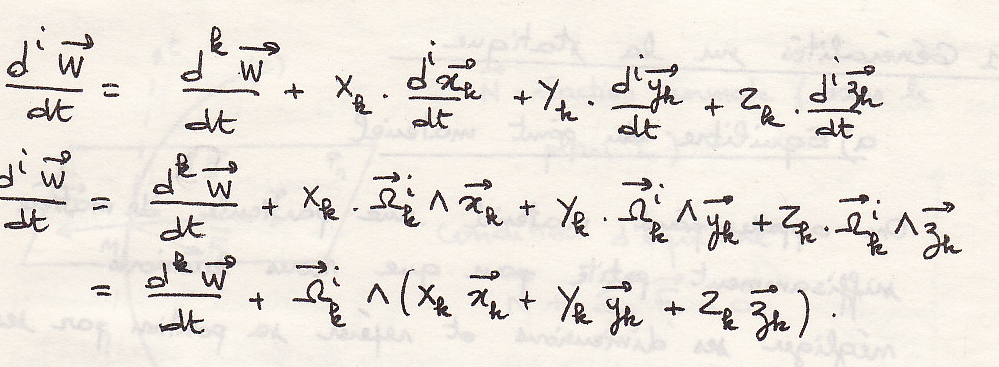 d^i W⃗/dt = d^k W⃗/dt + X_k . d^i x⃗_k/dt + Y_k . d^i y⃗_k/dt + Z_k . d^i z⃗_k/dt
d^i W⃗/dt = d^k W⃗/dt + X_k . Ω⃗_k^i ∧ x⃗_k + Y_k . Ω⃗_k^i ∧ y⃗_k + Z_k . Ω⃗_k^i ∧ z⃗_k
= d^k W⃗/dt + Ω⃗_k^i ∧ (X_k x⃗_k + Y_k y⃗_k + Z_k z⃗_k) .